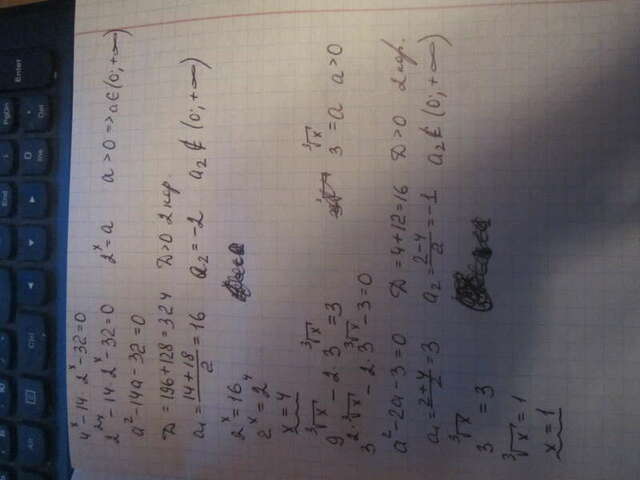 End
PgDn
Enter
Alt
Ctrl
Ins
Del
4^x - 14 · 2^x - 32 = 0
2^{2x} - 14 · 2^x - 32 = 0    2^x = a    a > 0 => a ∈ (0; +∞)
a² - 14a - 32 = 0
D = 196 + 128 = 324    D > 0 2 кор.
a₁ = (14 + 18)/2 = 16    a₂ = -2    a₂ ∉ (0; +∞)
2^x = 16
2^x = 2^4
x = 4
9^{∛x} - 2 · 3^{∛x} = 3    3^{∛x} = a    a > 0
3^{2·∛x} - 2 · 3^{∛x} - 3 = 0
a² - 2a - 3 = 0    D = 4 + 12 = 16    D > 0    2 кор.
a₁ = (2 + 4)/2 = 3    a₂ = (2 - 4)/2 = -1    a₂ ∉ (0; +∞)
3^{∛x} = 3
∛x = 1
x = 1